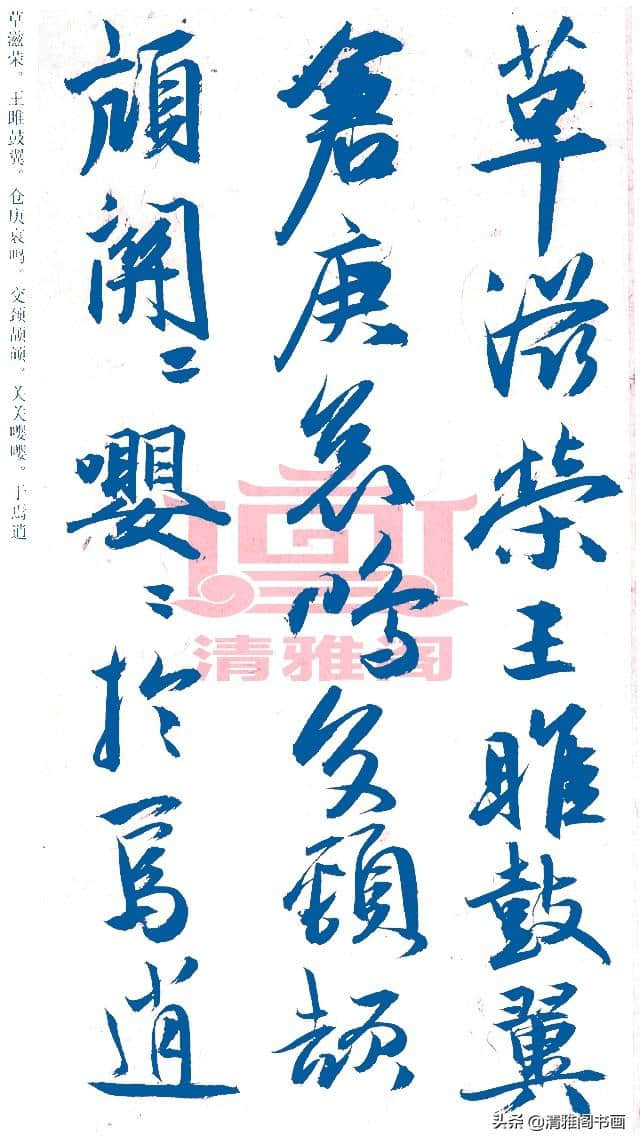 草滋荣王雎鼓翼
倉庚哀鳴交頸頡
頏關〻嚶〻於焉逍
草滋荣。王雎鼓翼。仓庚哀鸣。交颈颉颃。关关嘤嘤。于焉逍
清雅阁
头条@清雅阁书画